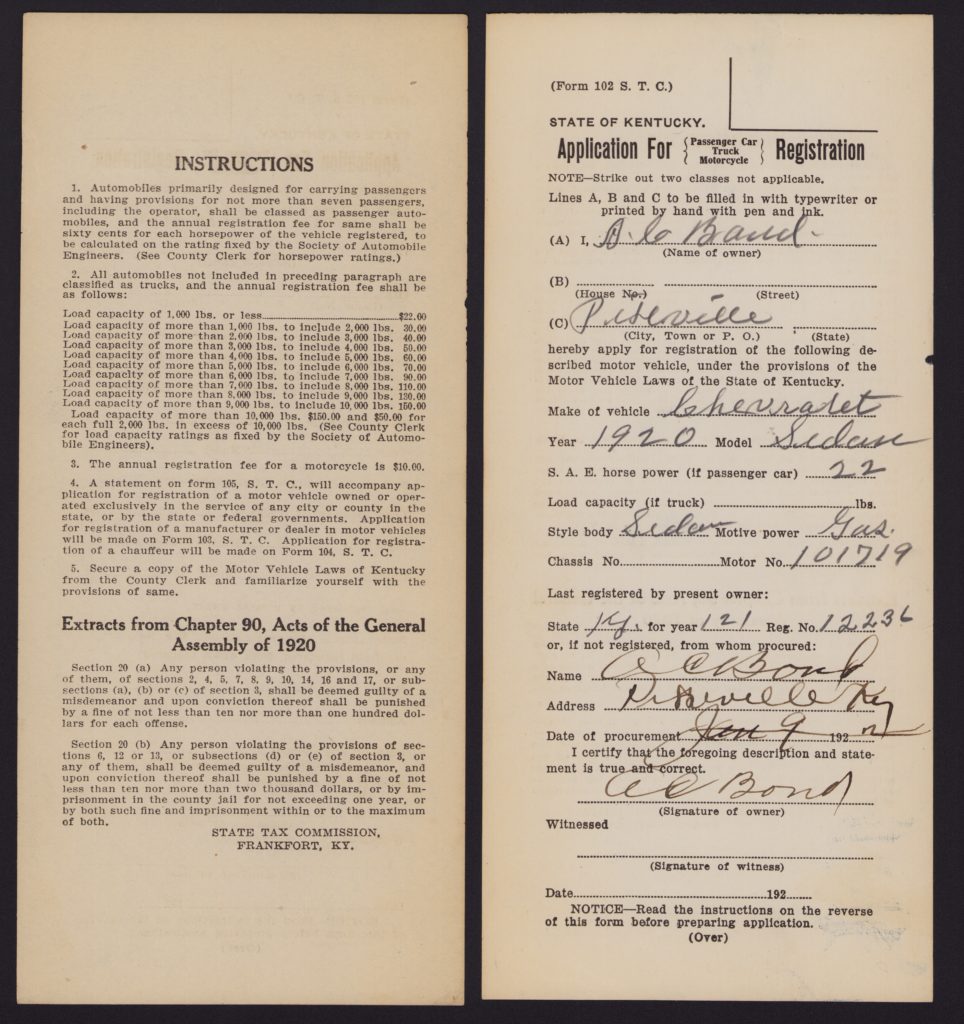 INSTRUCTIONS
1. Automobiles primarily designed for carrying passengers
and having provisions for not more than seven passengers,
including the operator, shall be classed as passenger auto-
mobiles, and the annual registration fee for same shall be
sixty cents for each horsepower of the vehicle registered, to
be calculated on the rating fixed by the Society of Automobile
Engineers. (See County Clerk for horsepower ratings.)
2. All automobiles not included in preceding paragraph are
classified as trucks, and the annual registration fee shall be
as follows:
Load capacity of 1,000 lbs. or less $22.00
Load capacity of more than 1,000 lbs. to include 2,000 lbs. 30.00
Load capacity of more than 2,000 lbs. to include 3,000 lbs. 40.00
Load capacity of more than 3,000 lbs. to include 4,000 lbs. 50.00
Load capacity of more than 4,000 lbs. to include 5,000 lbs. 60.00
Load capacity of more than 5,000 lbs. to include 6,000 lbs. 70.00
Load capacity of more than 6,000 lbs. to include 7,000 lbs. 90.00
Load capacity of more than 7,000 lbs. to include 8,000 lbs. 110.00
Load capacity of more than 8,000 lbs. to include 9,000 lbs. 130.00
Load capacity of more than 9,000 lbs. to include 10,000 lbs. 150.00
Load capacity of more than 10,000 lbs. $150.00 and $50.00 for
each full 2,000 lbs. in excess of 10,000 lbs. (See County Clerk
for load capacity ratings as fixed by the Society of Automo-
bile Engineers).
3. The annual registration fee for a motorcycle is $10.00.
4. A statement on form 105, S. T. C., will accompany ap-
plication for registration of a motor vehicle owned or oper-
ated exclusively in the service of any city or county in the
state, or by the state or federal governments. Application
for registration of a manufacturer or dealer in motor vehicles
will be made on Form 103, S. T. C. Application for registra-
tion of a chauffeur will be made on Form 104, S. T. C.
5. Secure a copy of the Motor Vehicle Laws of Kentucky
from the County Clerk and familiarize yourself with the
provisions of same.
Extracts from Chapter 90, Acts of the General
Assembly of 1920
Section 20 (a) Any person violating the provisions, or any
of them, of sections 2, 4, 5, 7, 8, 9, 10, 14, 16 and 17, or sub-
sections (a), (b) or (c) of section 3, shall be deemed guilty of a
misdemeanor and upon conviction thereof shall be punished
by a fine of not less than ten nor more than one hundred dol-
lars for each offense.
Section 20 (b) Any person violating the provisions of sec-
tions 6, 12 or 13, or subsections (d) or (e) of section 3, or
any of them, shall be deemed guilty of a misdemeanor, and
upon conviction thereof shall be punished by a fine of not
less than ten nor more than two thousand dollars, or by im-
prisonment in the county jail for not exceeding one year, or
by both such fine and imprisonment within or to the maximum
of both.
STATE TAX COMMISSION,
FRANKFORT, KY.
(Form 102 S. T. C.)
STATE OF KENTUCKY.
Application For { Passenger Car Truck Motorcycle } Registration
NOTE—Strike out two classes not applicable.
Lines A, B and C to be filled in with typewriter or
printed by hand with pen and ink.
(A) I, Bond
(Name of owner)
(B)
(House No.) (Street)
(C)
(City, Town or P. O.) (State)
hereby apply for registration of the following de-
scribed motor vehicle, under the provisions of the
Motor Vehicle Laws of the State of Kentucky.
Make of vehicle Chevrolet
Year 1920 Model Sedan
S. A. E. horse power (if passenger car) 22
Load capacity (if truck) lbs.
Style body Sedan Motive power Gas.
Chassis No. Motor No. 101719
Last registered by present owner:
State Ky. for year 121 Reg. No. 12236
or, if not registered, from whom procured:
Name A C Bond
Address Ky
Date of procurement Jan 9 192 2
I certify that the foregoing description and state-
ment is true and correct.
A C Bond
(Signature of owner)
Witnessed
(Signature of witness)
Date 192
NOTICE—Read the instructions on the reverse
of this form before preparing application.
(Over)